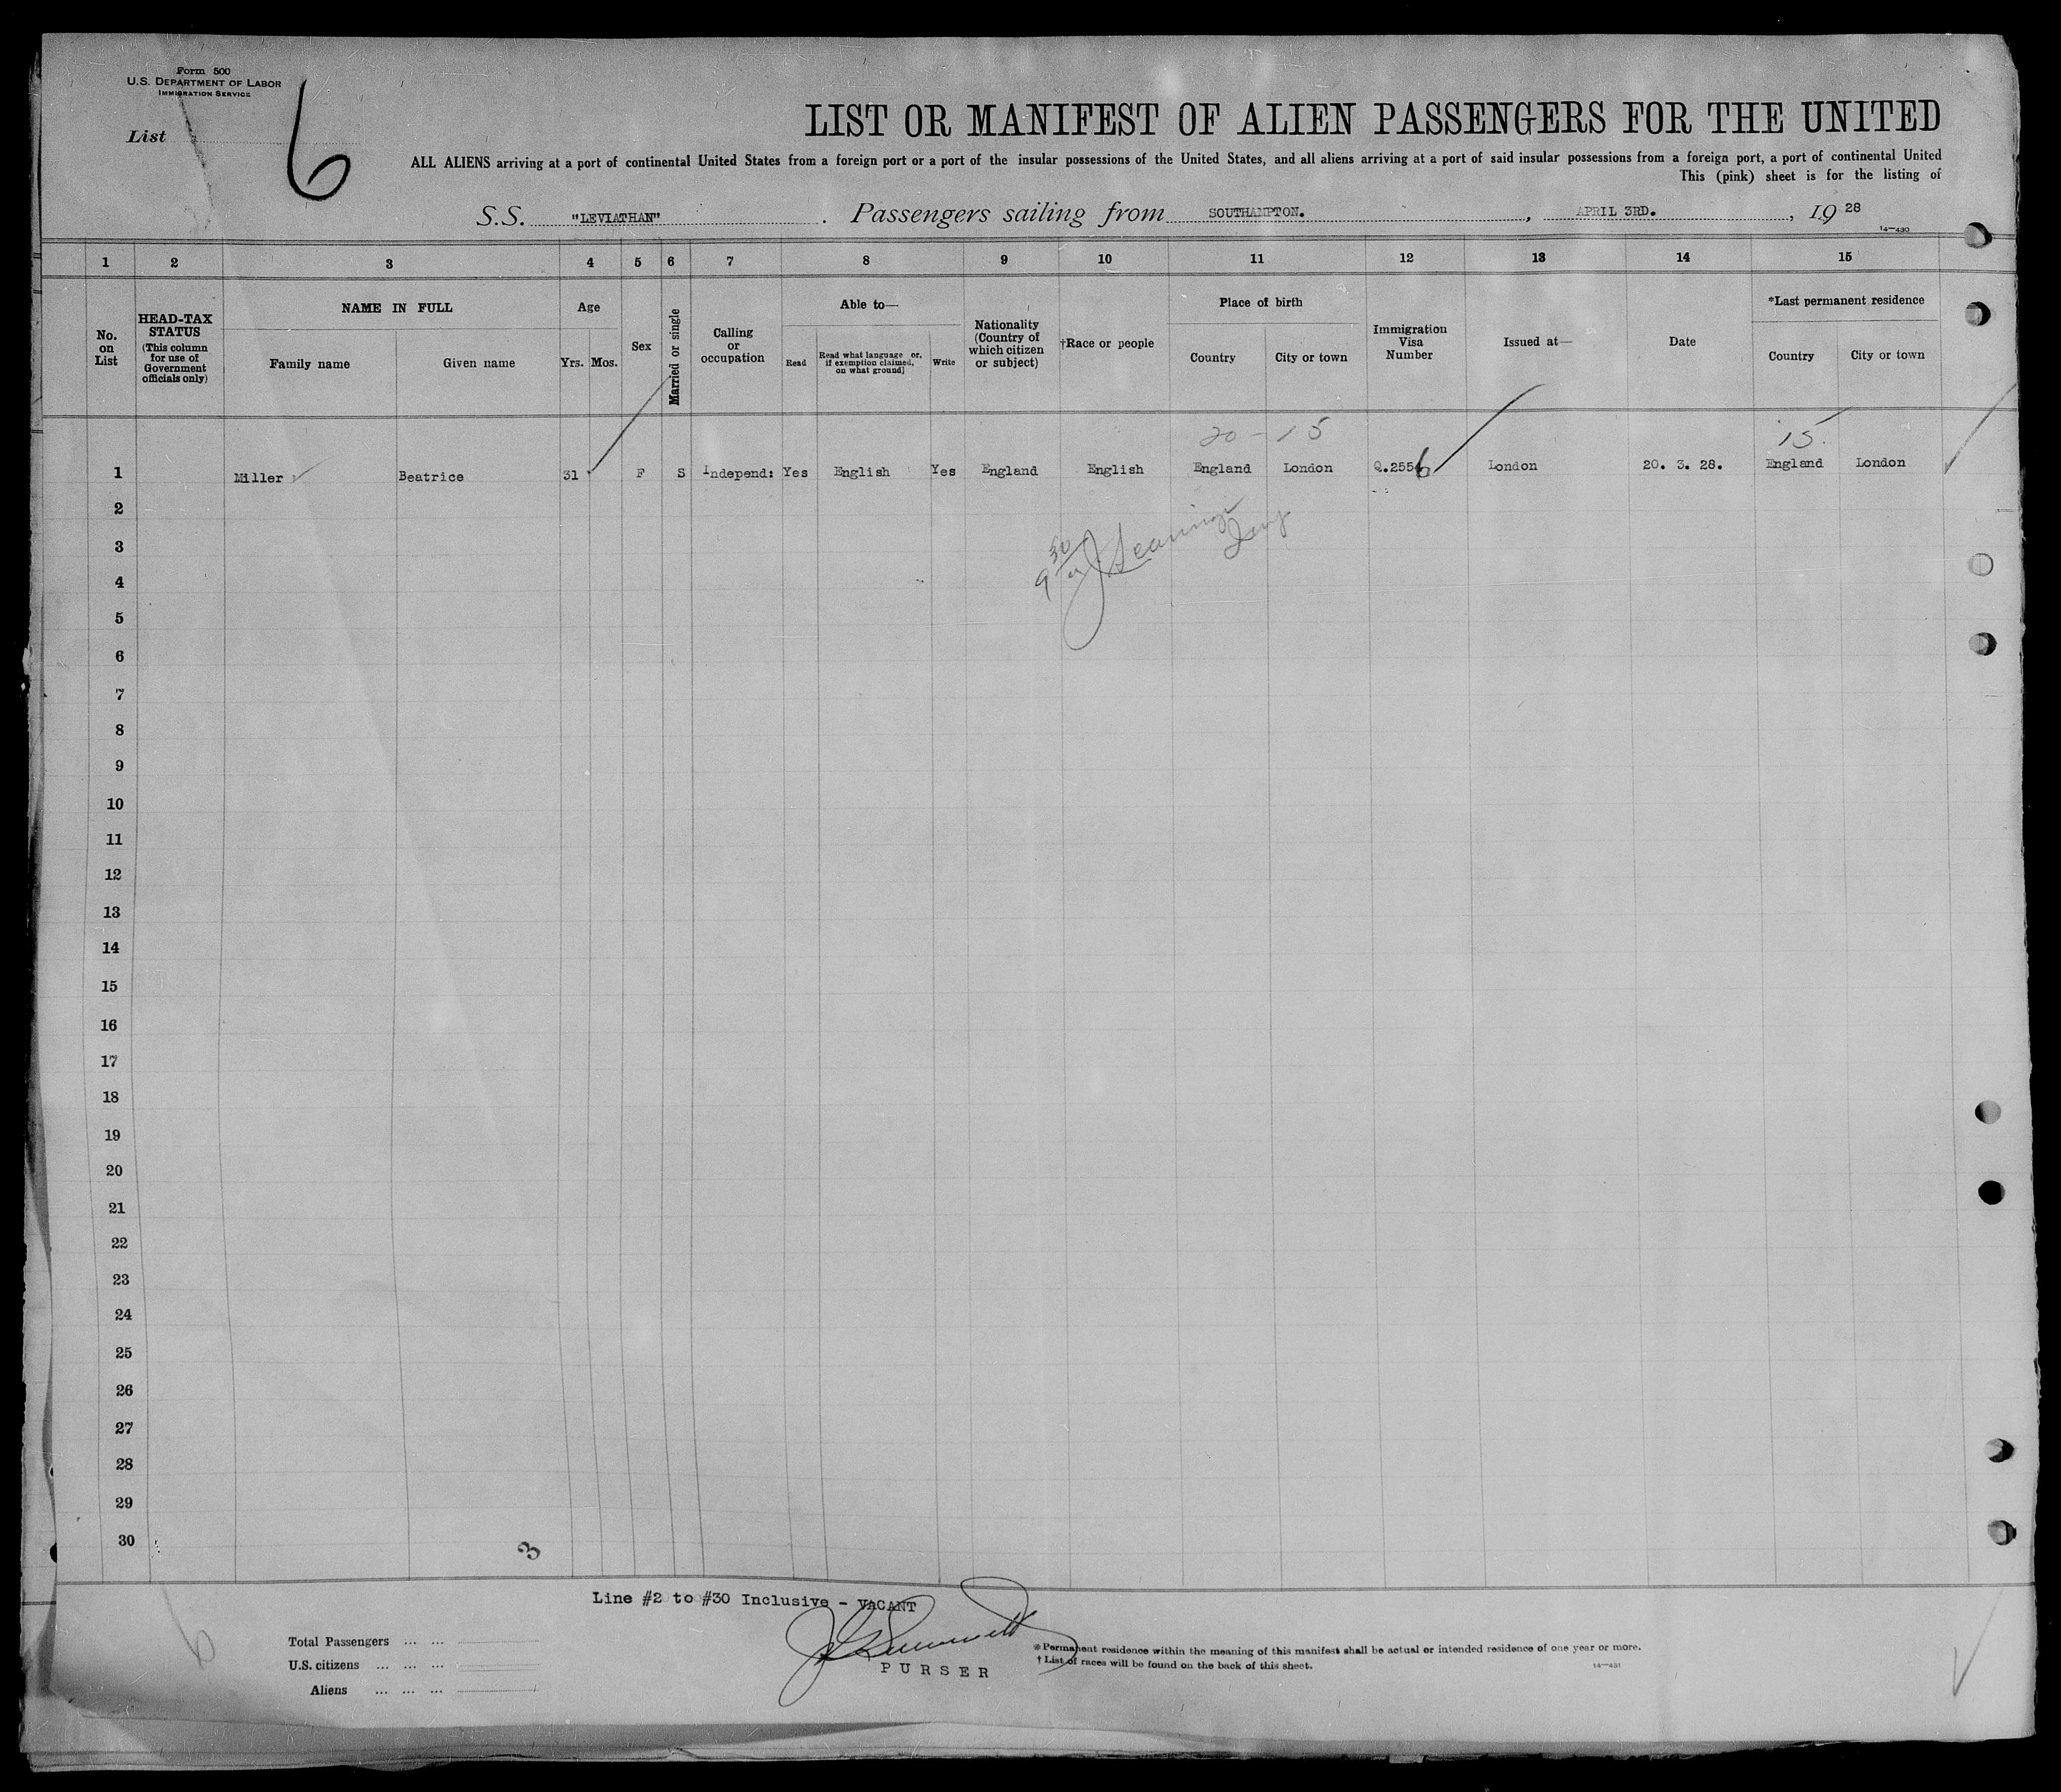 Form 500
U.S. DEPARTMENT OF LABOR
IMMIGRATION SERVICE
List
6
LIST OR MANIFEST OF ALIEN PASSENGERS FOR THE UNITED
ALL ALIENS arriving at a port of continental United States from a foreign port or a port of the insular possessions of the United States, and all aliens arriving at a port of said insular possessions from a foreign port, a port of continental United
This (pink) sheet is for the listing of
S.S. "LEVIATHAN" . Passengers sailing from SOUTHAMPTON. , APRIL 3RD. , 19 28
14—430
1 2 3 4 5 6 7 8 9 10 11 12 13 14 15
No. on List
HEAD-TAX STATUS
(This column for use of Government officials only)
NAME IN FULL
Family name Given name
Age
Yrs. Mos.
Sex
Married or single
Calling or occupation
Able to—
Read
Read what language or, if exemption claimed, on what ground]
Write
Nationality (Country of which citizen or subject)
†Race or people
Place of birth
Country City or town
Immigration Visa Number
Issued at—
Date
*Last permanent residence
Country City or town
20 - 15 15
1 Miller Beatrice 31 F S Independ: Yes English Yes England English England London Q.2556 London 20. 3. 28. England London
2
3
4
5
6
7
8
9
10
11
12
13
14
15
16
17
18
19
20
21
22
23
24
25
26
27
28
29
30
3
Line #2 to #30 Inclusive - VACANT
6
Total Passengers ... ...
U.S. citizens ... ... ...
Aliens ... ... ...
PURSER
* Permanent residence within the meaning of this manifest shall be actual or intended residence of one year or more.
† List of races will be found on the back of this sheet.
14—431